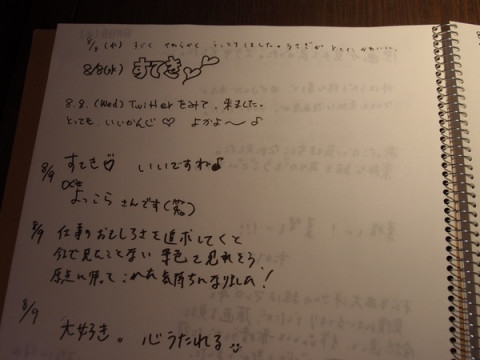 8/8 (水) すてき♡♡
8.8. (Wed) Twitterをみて、来ました。
とっても いいかんじ♡ よかよ〜♪
8/9 すてき♡ いいですね♪
よっこらさんです(笑)
8/9 仕事のおもしろさを追求してくと
今まで見たことない景色て見れそう
原点に戻って
気持ちになりました!
8/9
大好き。 心うたれる